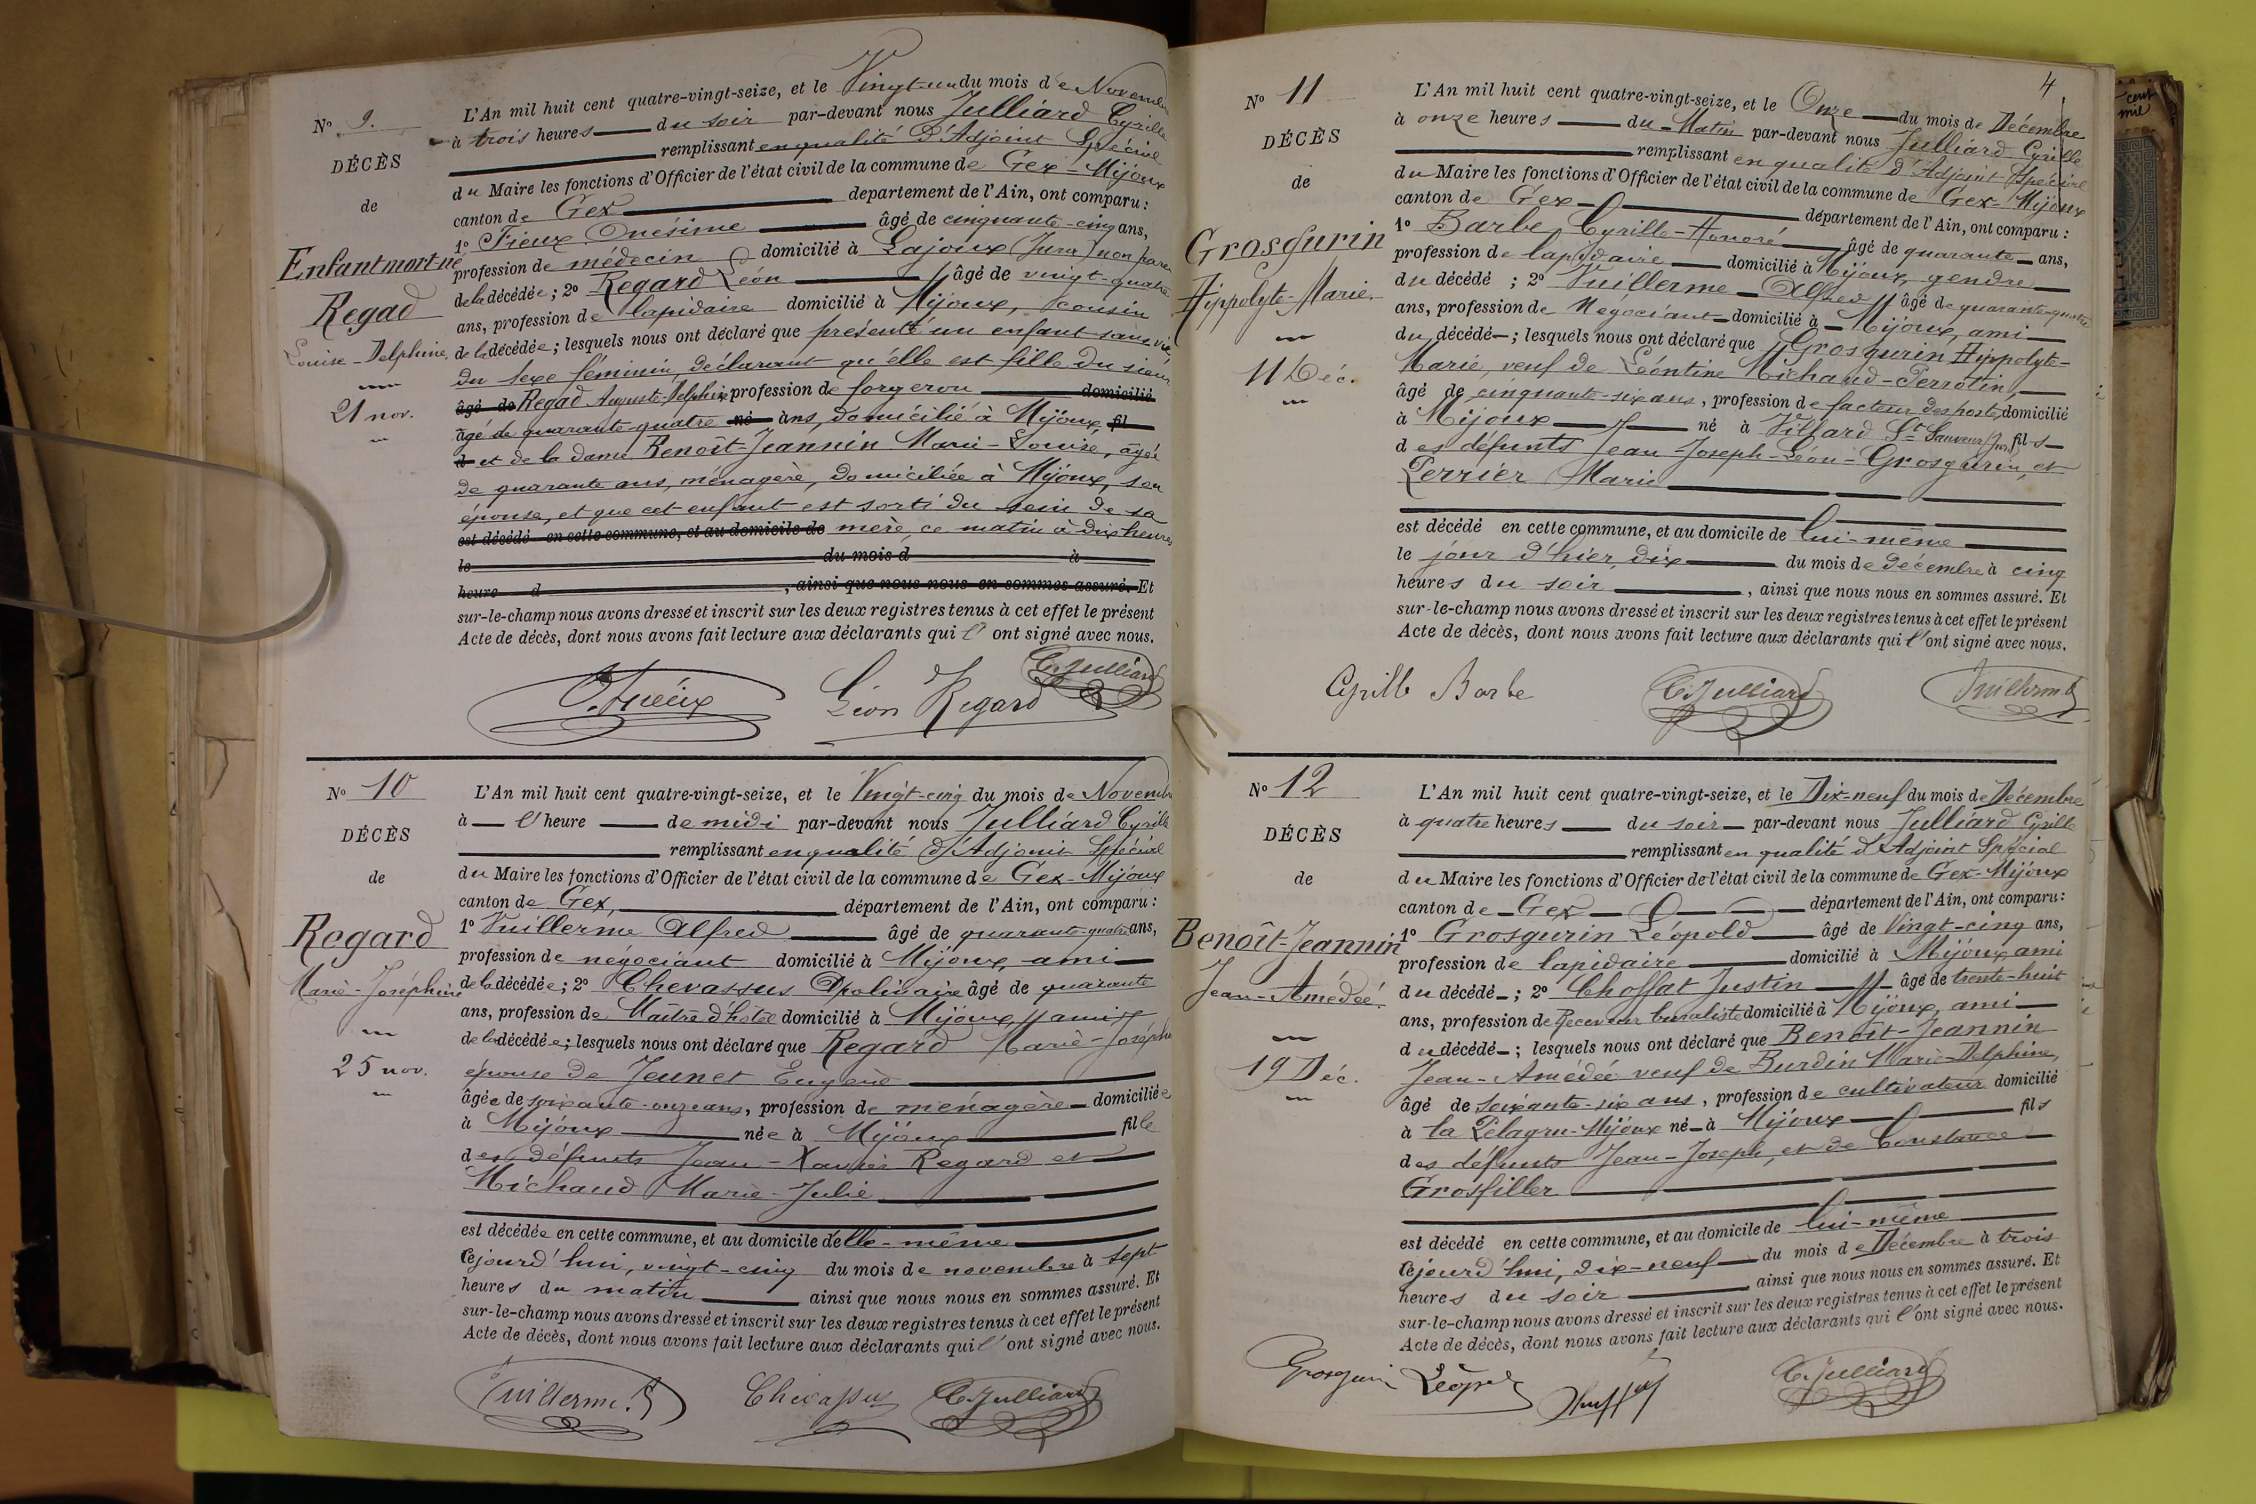 N° 9.
DÉCÈS
de
Enfant mort né
Regad
Louise-Delphine
21 nov.
L'An mil huit cent quatre-vingt-seize, et le Vingt-un du mois de Novembre
à trois heures du soir par-devant nous Julliard Cyrille
remplissant en qualité d'Adjoint Spécial
du Maire les fonctions d'Officier de l'état civil de la commune de Gex-Mijoux
canton de Gex département de l'Ain, ont comparu :
1° Fieux Onésime âgé de cinquante-cinq ans,
profession de médecin domicilié à Lajoux (Jura) non parent
de la décédée ; 2° Regard Léon âgé de vingt-quatre
ans, profession de lapidaire domicilié à Mijoux, cousin
de la décédée ; lesquels nous ont déclaré que présenté un enfant sans vie,
du sexe féminin, déclarant qu'elle est fille du sieur
âgé de Regad Auguste-Delphin profession de forgeron domicilié
âgé de quarante-quatre né ans, domicilié à Mijoux, fil
d et de la dame Benoît-Jeannin Marie-Louise, âgée
de quarante ans, ménagère, domiciliée à Mijoux, son
épouse, et que cet enfant est sorti du sein de sa
est décédé en cette commune, et au domicile de mère, ce matin à dix heures
le du mois d à
heure d , ainsi que nous nous en sommes assuré. Et
sur-le-champ nous avons dressé et inscrit sur les deux registres tenus à cet effet le présent
Acte de décès, dont nous avons fait lecture aux déclarants qui l'ont signé avec nous.
O. Fieux Léon Regard C. Julliard
N° 10
DÉCÈS
de
Regard
Marie-Joséphine
25 nov.
L'An mil huit cent quatre-vingt-seize, et le Vingt-cinq du mois de Novembre
à l'heure de midi par-devant nous Julliard Cyrille
remplissant en qualité d'Adjoint Spécial
du Maire les fonctions d'Officier de l'état civil de la commune de Gex-Mijoux
canton de Gex, département de l'Ain, ont comparu :
1° Vuillerme Alfred âgé de quarante-quatre ans,
profession de négociant domicilié à Mijoux, ami
de la décédée ; 2° Chevassus Apolinaire âgé de quarante
ans, profession de Maître d'hôtel domicilié à Mijoux, ami
de la décédée ; lesquels nous ont déclaré que Regard Marie-Joséphine
épouse de Jeunet Eugène
âgée de soixante-onze ans, profession de ménagère domiciliée
à Mijoux née à Mijoux fille
des défunts Jean-Xavier Regard et
Michaud Marie-Julie
est décédée en cette commune, et au domicile d'elle-même
Cejourd'hui, vingt-cinq du mois de novembre à sept
heures du matin ainsi que nous nous en sommes assuré. Et
sur-le-champ nous avons dressé et inscrit sur les deux registres tenus à cet effet le présent
Acte de décès, dont nous avons fait lecture aux déclarants qui l'ont signé avec nous.
Vuillerme A Chevassus C. Julliard
4
N° 11
DÉCÈS
de
Grosgurin
Hippolyte-Marie.
11 Déc.
L'An mil huit cent quatre-vingt-seize, et le Onze du mois de Décembre
à onze heures du Matin par-devant nous Julliard Cyrille
remplissant en qualité d'Adjoint Spécial
du Maire les fonctions d'Officier de l'état civil de la commune de Gex-Mijoux
canton de Gex département de l'Ain, ont comparu :
1° Barbe Cyrille-Honoré âgé de quarante ans,
profession de lapidaire domicilié à Mijoux, gendre
du décédé ; 2° Vuillerme Alfred âgé de quarante-quatre
ans, profession de Négociant domicilié à Mijoux, ami
du décédé ; lesquels nous ont déclaré que Grosgurin Hippolyte-
Marie, veuf de Léontine Michaud-Perrotin,
âgé de cinquante-six ans, profession de facteur des postes, domicilié
à Mijoux né à Villard St Sauveur (Jura) fils
des défunts Jean-Joseph-Léon-Grosgurin, et
Perrier Marie
est décédé en cette commune, et au domicile de lui-même
le jour d'hier, dix du mois de décembre à cinq
heures du soir , ainsi que nous nous en sommes assuré. Et
sur-le-champ nous avons dressé et inscrit sur les deux registres tenus à cet effet le présent
Acte de décès, dont nous avons fait lecture aux déclarants qui l'ont signé avec nous.
Cyrille Barbe C. Julliard Vuillerme A
N° 12
DÉCÈS
de
Benoît-Jeannin
Jean-Amédée.
19 Déc.
L'An mil huit cent quatre-vingt-seize, et le Dix-neuf du mois de Décembre
à quatre heures du soir par-devant nous Julliard Cyrille
remplissant en qualité d'Adjoint Spécial
du Maire les fonctions d'Officier de l'état civil de la commune de Gex-Mijoux
canton de Gex département de l'Ain, ont comparu :
1° Grosgurin Léopold âgé de Vingt-cinq ans,
profession de lapidaire domicilié à Mijoux ami
du décédé ; 2° Choffat Justin âgé de trente-huit
ans, profession de Receveur buraliste domicilié à Mijoux, ami
du décédé ; lesquels nous ont déclaré que Benoît-Jeannin
Jean-Amédée veuf de Burdin Marie-Delphine,
âgé de soixante-six ans, profession de cultivateur domicilié
à la Pélagru-Mijoux né à Mijoux fils
des défunts Jean-Joseph, et de Constance
Grosfiller
est décédé en cette commune, et au domicile de lui-même
Cejourd'hui, dix-neuf du mois de Décembre à trois
heures du soir ainsi que nous nous en sommes assuré. Et
sur-le-champ nous avons dressé et inscrit sur les deux registres tenus à cet effet le présent
Acte de décès, dont nous avons fait lecture aux déclarants qui l'ont signé avec nous.
Grosgurin Léopold C. Julliard
cent
mil